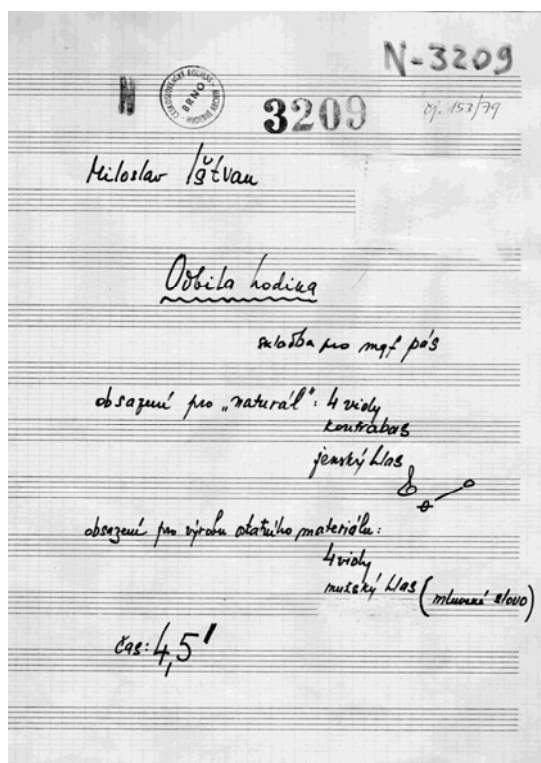 N-3209
N
ČESKOSLOVENSKÝ ROZHLAS
BRNO
3209
čj. 153/79
Miloslav Ištvan
Odbila hodina
skladba pro mgf pás
obsazení pro „naturál": 4 violy
kontrabas
ženský hlas
obsazení pro výrobu ostatního materiálu:
4 violy
mužský hlas (mluvené slovo)
čas: 4,5'